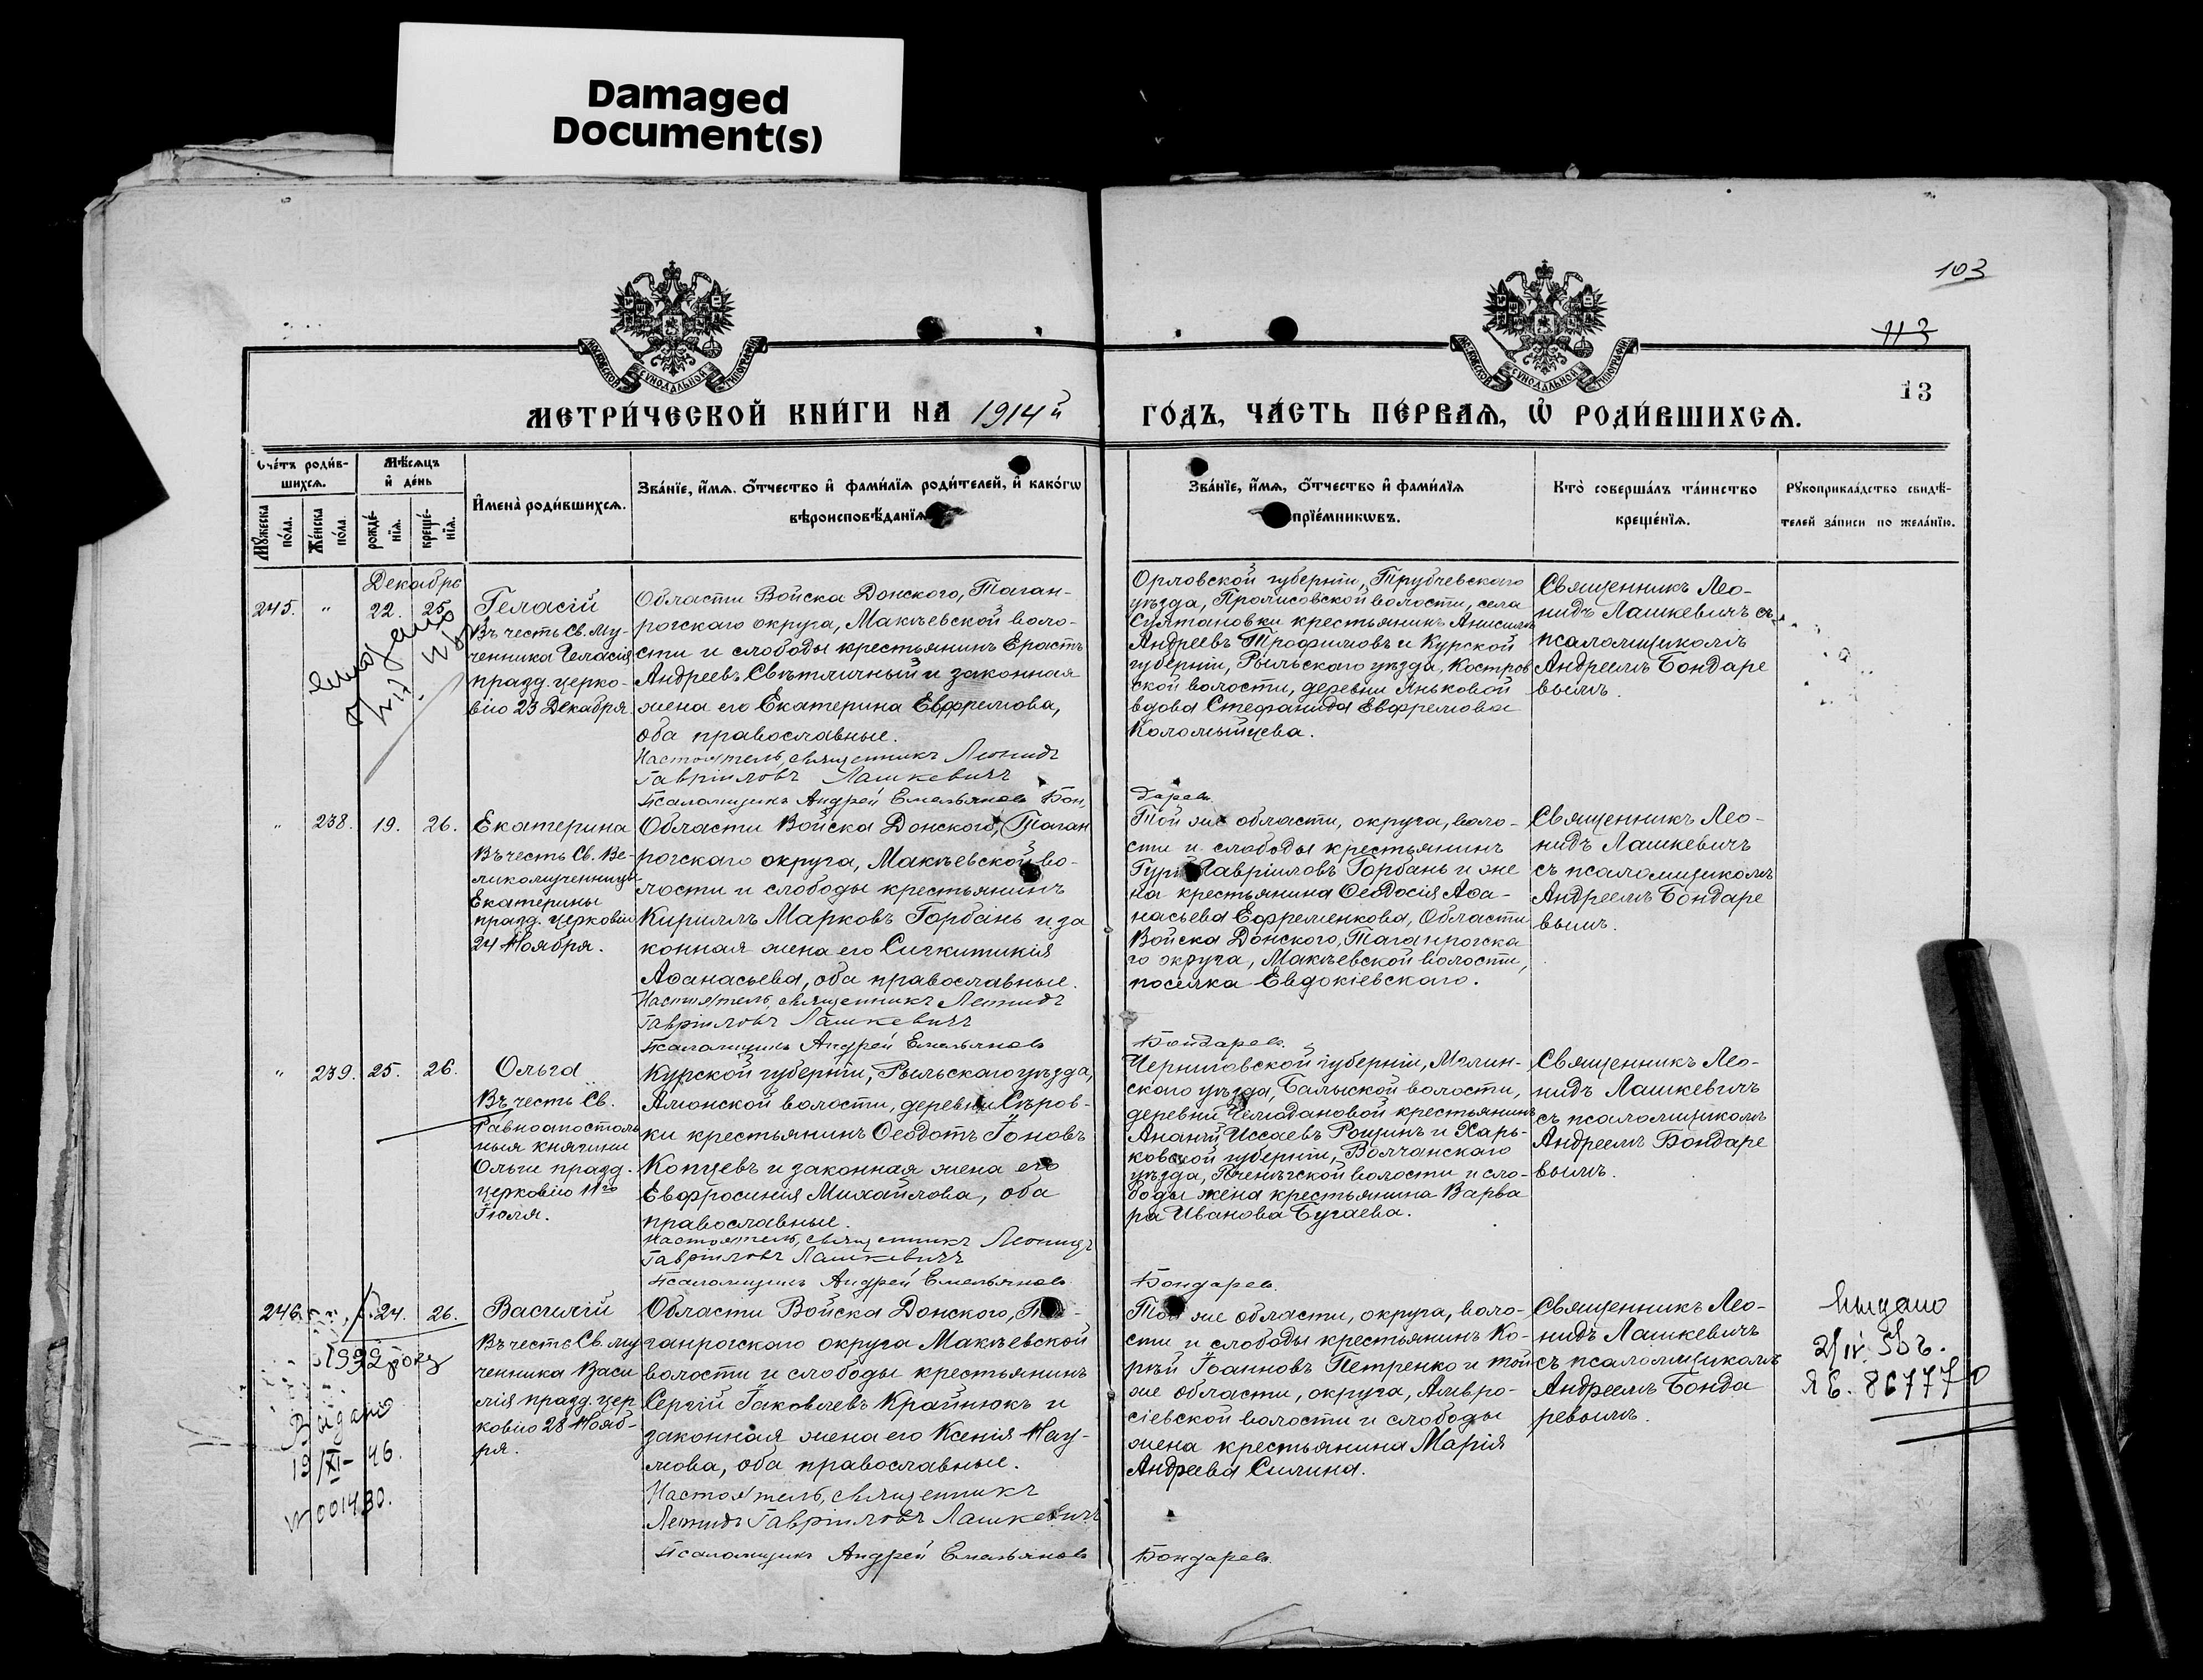 Damaged
Document(s)
103
113
13
МОСКОВСКОЙ СѴНОДАЛЬНОЙ ТИПОГРАФІИ
МОСКОВСКОЙ СѴНОДАЛЬНОЙ ТИПОГРАФІИ
МЕТРИ́ЧЕСКОЙ КНИ́ГИ НА 1914й ГО́ДЪ, ЧА́СТЬ ПЕ́РВАѦ, Ѡ҆ РОДИ́ВШИХСѦ.
Сче́тъ роди́в-
шихсѧ.
Мꙋ́жеска по́ла.
Же́нска по́ла.
Мѣ́сѧцъ
и҆ де́нь
рожде́-
нїѧ.
креще́-
нїѧ.
И҆мена̀ роди́вшихсѧ.
Зва́нїе, и҆́мѧ, ѻ҆́тчество и҆ фами́лїѧ роди́телей, и҆ како́гѡ
вѣроисповѣ́данїѧ
Зва́нїе, и҆́мѧ, ѻ҆́тчество и҆ фами́лїѧ
прїе́мникѡвъ.
Кто̀ соверша́лъ та́инство
креще́нїѧ.
Рꙋкоприкла́дство свидѣ́-
телей за́писи по жела́нїю.
Декабрь
245. " 22. 25.
Геласій
Въ честь Св. му-
ченника Геласія
празд. церко-
вію 23 Декабря
Области Войска Донского, Таган-
рогскаго округа, Макѣевской воло-
сти и слободы крестьянинъ Ерастъ
Андреевъ Свѣтличный и законная
жена его Екатерина Евфремова,
оба православные.
Настоятель, священникъ Леонидъ
Гавріиловъ Лашкевичъ
Псаломщикъ Андрей Емельяновъ Бон-
Орловской губерніи, Трубчевскаго
уѣзда, Пролисовской волости, села
Султановки крестьянинъ Анисимъ
Андреевъ Трофимовъ и Курской
губерніи, Рыльскаго уѣзда, Костров
ской волости, деревни Яньковой
вдова Стефанида Евфремова
Коломыйцева.
даревъ.
Священникъ Лео-
нидъ Лашкевичъ съ
псаломщикомъ
Андреемъ Бондаре
вымъ.
" 238. 19. 26.
Екатерина
Въ честь Св. Ве-
ликомученницы
Екатерины
празд. церковію
24 Ноября.
Области Войска Донского, Таган
рогскаго округа, Макѣевской во-
лости и слободы крестьянинъ
Кириллъ Марковъ Горбань и за
конная жена его Сигкитикія
Аѳанасьева, оба православные.
Настоятель, священникъ Леонидъ
Гавріиловъ Лашкевичъ
Псаломщикъ Андрей Емельяновъ
Той же области, округа, воло-
сти и слободы крестьянинъ
Гурій Гавріиловъ Горбань и же
на крестьянина Ѳеодосія Аѳа-
насьева Ефременкова, Области
Войска Донского, Таганрогска
го округа, Макѣевской волости,
поселка Евдокіевскаго.
Бондаревъ.
Священникъ Лео-
нидъ Лашкевичъ
съ псаломщикомъ
Андреемъ Бондаре
вымъ.
" 239. 25. 26.
Ольга
Въ честь Св.
Равноапостоль
ныя княгини
Ольги празд.
церковію 11го
Іюля.
Курской губерніи, Рыльскаго уѣзда,
Амонской волости, деревни Сѣров-
ки крестьянинъ Ѳеодотъ Іоновъ
Копцевъ и законная жена его
Евфросинія Михайлова, оба
православные.
Настоятель, священникъ Леонидъ
Гавріиловъ Лашкевичъ
Псаломщикъ Андрей Емельяновъ
Черниговской губерніи, Мглин-
скаго уѣзда, Балыской волости,
деревни Чемодановой крестьянинъ
Ананій Иссаевъ Рощинъ и Харь-
ковской губерніи, Волчанскаго
уѣзда, волости и сло-
боды жена крестьянина Варва
ра Иванова Бугаева.
Бондаревъ.
Священникъ Лео-
нидъ Лашкевичъ
съ псаломщикомъ
Андреемъ Бондаре
вымъ.
246. 24. 26.
Василій
Въ честь Св. му
ченника Васи
лія празд. цер
ковію 28 Нояб-
ря.
Области Войска Донского, Та-
ганрогскаго округа Макѣевской
волости и слободы крестьянинъ
Сергій Іаковлевъ Крайнюкъ и
законная жена его Ксенія Нау-
мова, оба православные.
Настоятель, священникъ
Леонидъ Гавріиловъ Лашкевичъ
Псаломщикъ Андрей Емельяновъ
Той же области, округа, воло-
сти и слободы крестьянинъ Ко-
рнѣй Іоанновъ Петренко и той
же области, округа, Амвро-
сіевской волости и слободы
жена крестьянина Марія
Андреева Силина.
Бондаревъ.
Священникъ Лео-
нидъ Лашкевичъ
съ псаломщикомъ
Андреемъ Бонда
ревымъ.
Выдано
19/XI-46.
№001430.